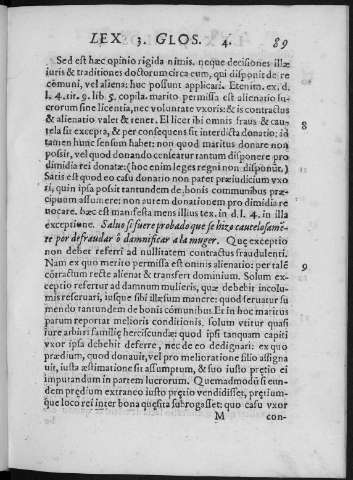 LEX 3. GLOS. 4. 89
Sed est hæc opinio rigida nimis. neque decisiones illæ
iuris & traditiones doctorum circa eum, qui disponit de re
cõmuni, vel aliena: huc possunt applicari. Etenim. ex. d.
l. 4. tit. 9. lib. 5. copila. marito permissa est alienatio lu-
crorum sine licentia, nec voluntate vxoris: & is contractus
& alienatio valet & tenet. El licet ibi omnis fraus & cau-
tela sit excepta, & per consequens sit interdicta donatio: id
tamen hunc sensum habet: non quod maritus donare non
possit, vel quod donando censeatur tantum disponere pro
dimidia rei donatæ (hoc enim leges regni non disponũt.)
Satis est quod eo casu donatio non paret præiudicium vxo
ri, quin ipsa possit tantundem de bonis communibus præ-
cipuum assumere: non autem donationem pro dimidia re
uocare. hæc est manifesta mens illius tex. in d. l. 4. in illa
exceptione. Saluo si fuere probado que se hizo cautelosamẽ-
te por defraudar ò damnificar a la muger. Quę exceptio
non debet referri ad nullitatem contractus fraudulenti.
Nam ex quo marito permissa est omnis alienatio: per talẽ
cõtractum recte alienat & transfert dominium. Solum ex-
ceptio refertur ad damnum mulieris, quæ debebit incolu-
mis reseruari, iusque sibi illæsum manere: quod seruatur su
mendo tantundem de bonis cõmunibus. Et in hoc maritus
parum reportat melioris conditionis. solum vtitur quasi
iure arbitri familię herciscundæ: quod ipsi tanquam capiti
vxor ipsa debebit deferre, nec de eo dedignari: ex quo
prædium, quod donauit, vel pro melioratione filio assigna
uit, iusta æstimatione sit assumptum, & suo iusto pretio ei
imputandum in partem lucrorum. Quemadmodũ si eun-
dem prędium extraneo iusto pretio vendidisset, pretium-
que loco rei inter bona quęsita subrogasset: quo casu vxor
M con-
8
9